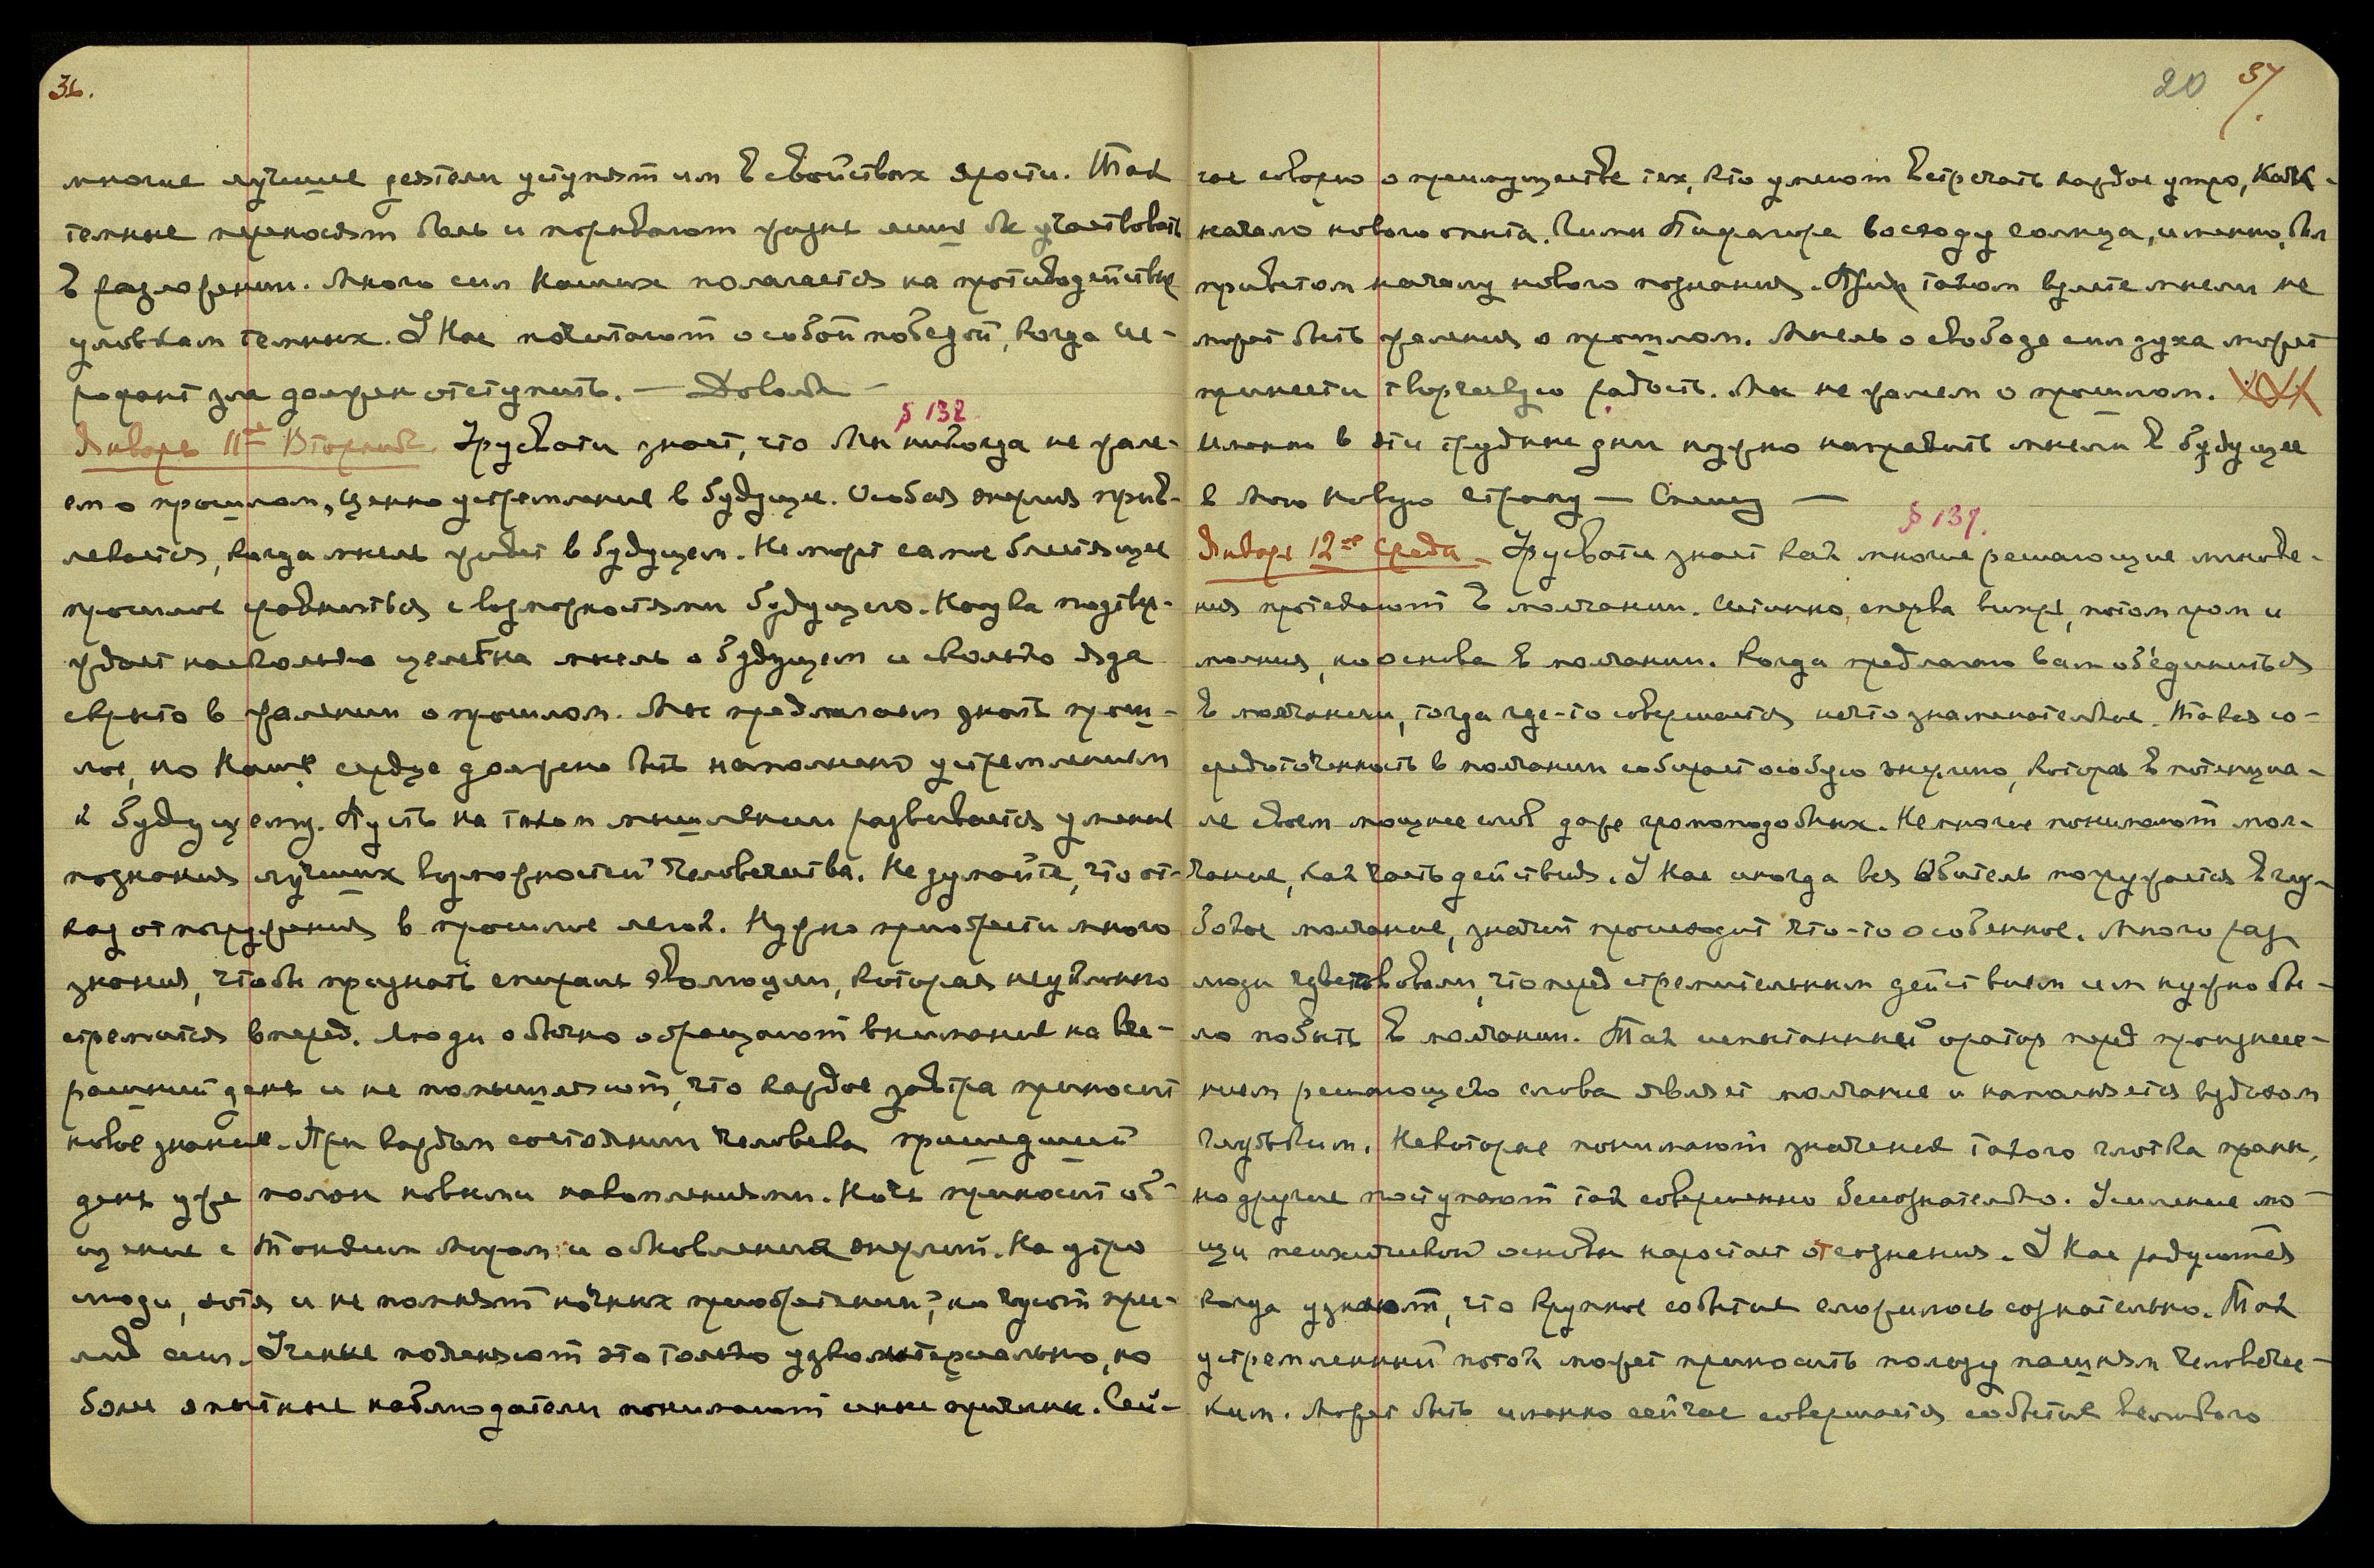 36.
многие лучшие деятели уступят им в свойствах ярости. Так
темные переносят боль и порывают жизнь лишь бы участвовать
в разложении. Много сил Наших полагается на противодействие
уловкам темных. У Нас почитают особой победой, когда ие-
рофант зла должен отступить. — Довольно —
§ 138
Январь 11ое Вторник. Урусвати знает, что Мы никогда не жале-
ем о прошлом, ценно устремление в будущее. Особая энергия прив-
лекается, когда мысль живет в будущем. Не может самое блестящее
прошлое сравниться с возможностями будущего. Наука подтвер-
ждает насколько целебна мысль о будущем и сколько яда
скрыто в жалении о прошлом. Мы предлагаем знать прош-
лое, но Наше сердце должно быть наполнено устремлением
к будущему. Пусть на таком мышлении развивается умение
познания лучших возможностей человечества. Не думайте, что от-
каз от погружения в прошлое легок. Нужно приобрести много
знания, чтобы признать спираль эволюции, которая неуклонно
стремится вперед. Люди обычно обращают внимание на вче-
рашний день и не помышляют, что каждое завтра приносит
новое знание. При каждом состоянии человека пришедший
день уже полон новыми накоплениями. Ночь приносит об-
щение с Тонким Миром и обновления энергий. На утро
люди, хотя и не помнят ночных приобретений, но чуют при-
лив сил. Ученые поясняют это только узко материально, но
более опытные наблюдатели понимают иные причины. Сей-
20 37.
час говорю о преимуществе тех, кто умеют встречать каждое утро, как
начало нового опыта. Гимн Пифагора восходу солнца, именно, был
приветом началу нового познания. При таком взлете мысли не
может быть жаления о прошлом. Мысль о свободе сил духа может
принести творческую радость. Мы не жалеем о прошлом.
Именно в эти трудные дни нужно направить мысли в будущее
в Мою Новую Страну — Спешу —
§ 139.
Январь 12ое Среда. Урусвати знает как многие решающие мгнове-
ния протекают в молчании. Истинно, сперва вихрь, потом гром и
молния, но основа в молчании. Когда предлагаю вам объединиться
в молчании, тогда где-то совершается нечто знаменательное. Такая со-
средоточенность в молчании собирает особую энергию, которая в потенциа-
ле своем мощнее слов даже громоподобных. Не многие понимают мол-
чание, как часть действия. У Нас иногда вся Обитель погружается в глу-
бокое молчание, значит происходит что-то особенное. Много раз
люди чувствовали, что перед стремительным действием им нужно бы-
ло побыть в молчании. Так испытанный оратор перед произнесе-
нием решающего слова являет молчание и наполняется вздохом
глубоким. Некоторые понимают значение такого глотка праны,
но другие поступают так совершенно бессознательно. Усиление мо-
щи психической основы нарастает от сознания. У Нас радуются
когда узнают, что крупное событие сложилось сознательно. Так
устремленный поток может приносить пользу нациям человечес-
ким. Может быть именно сейчас совершается событие великого